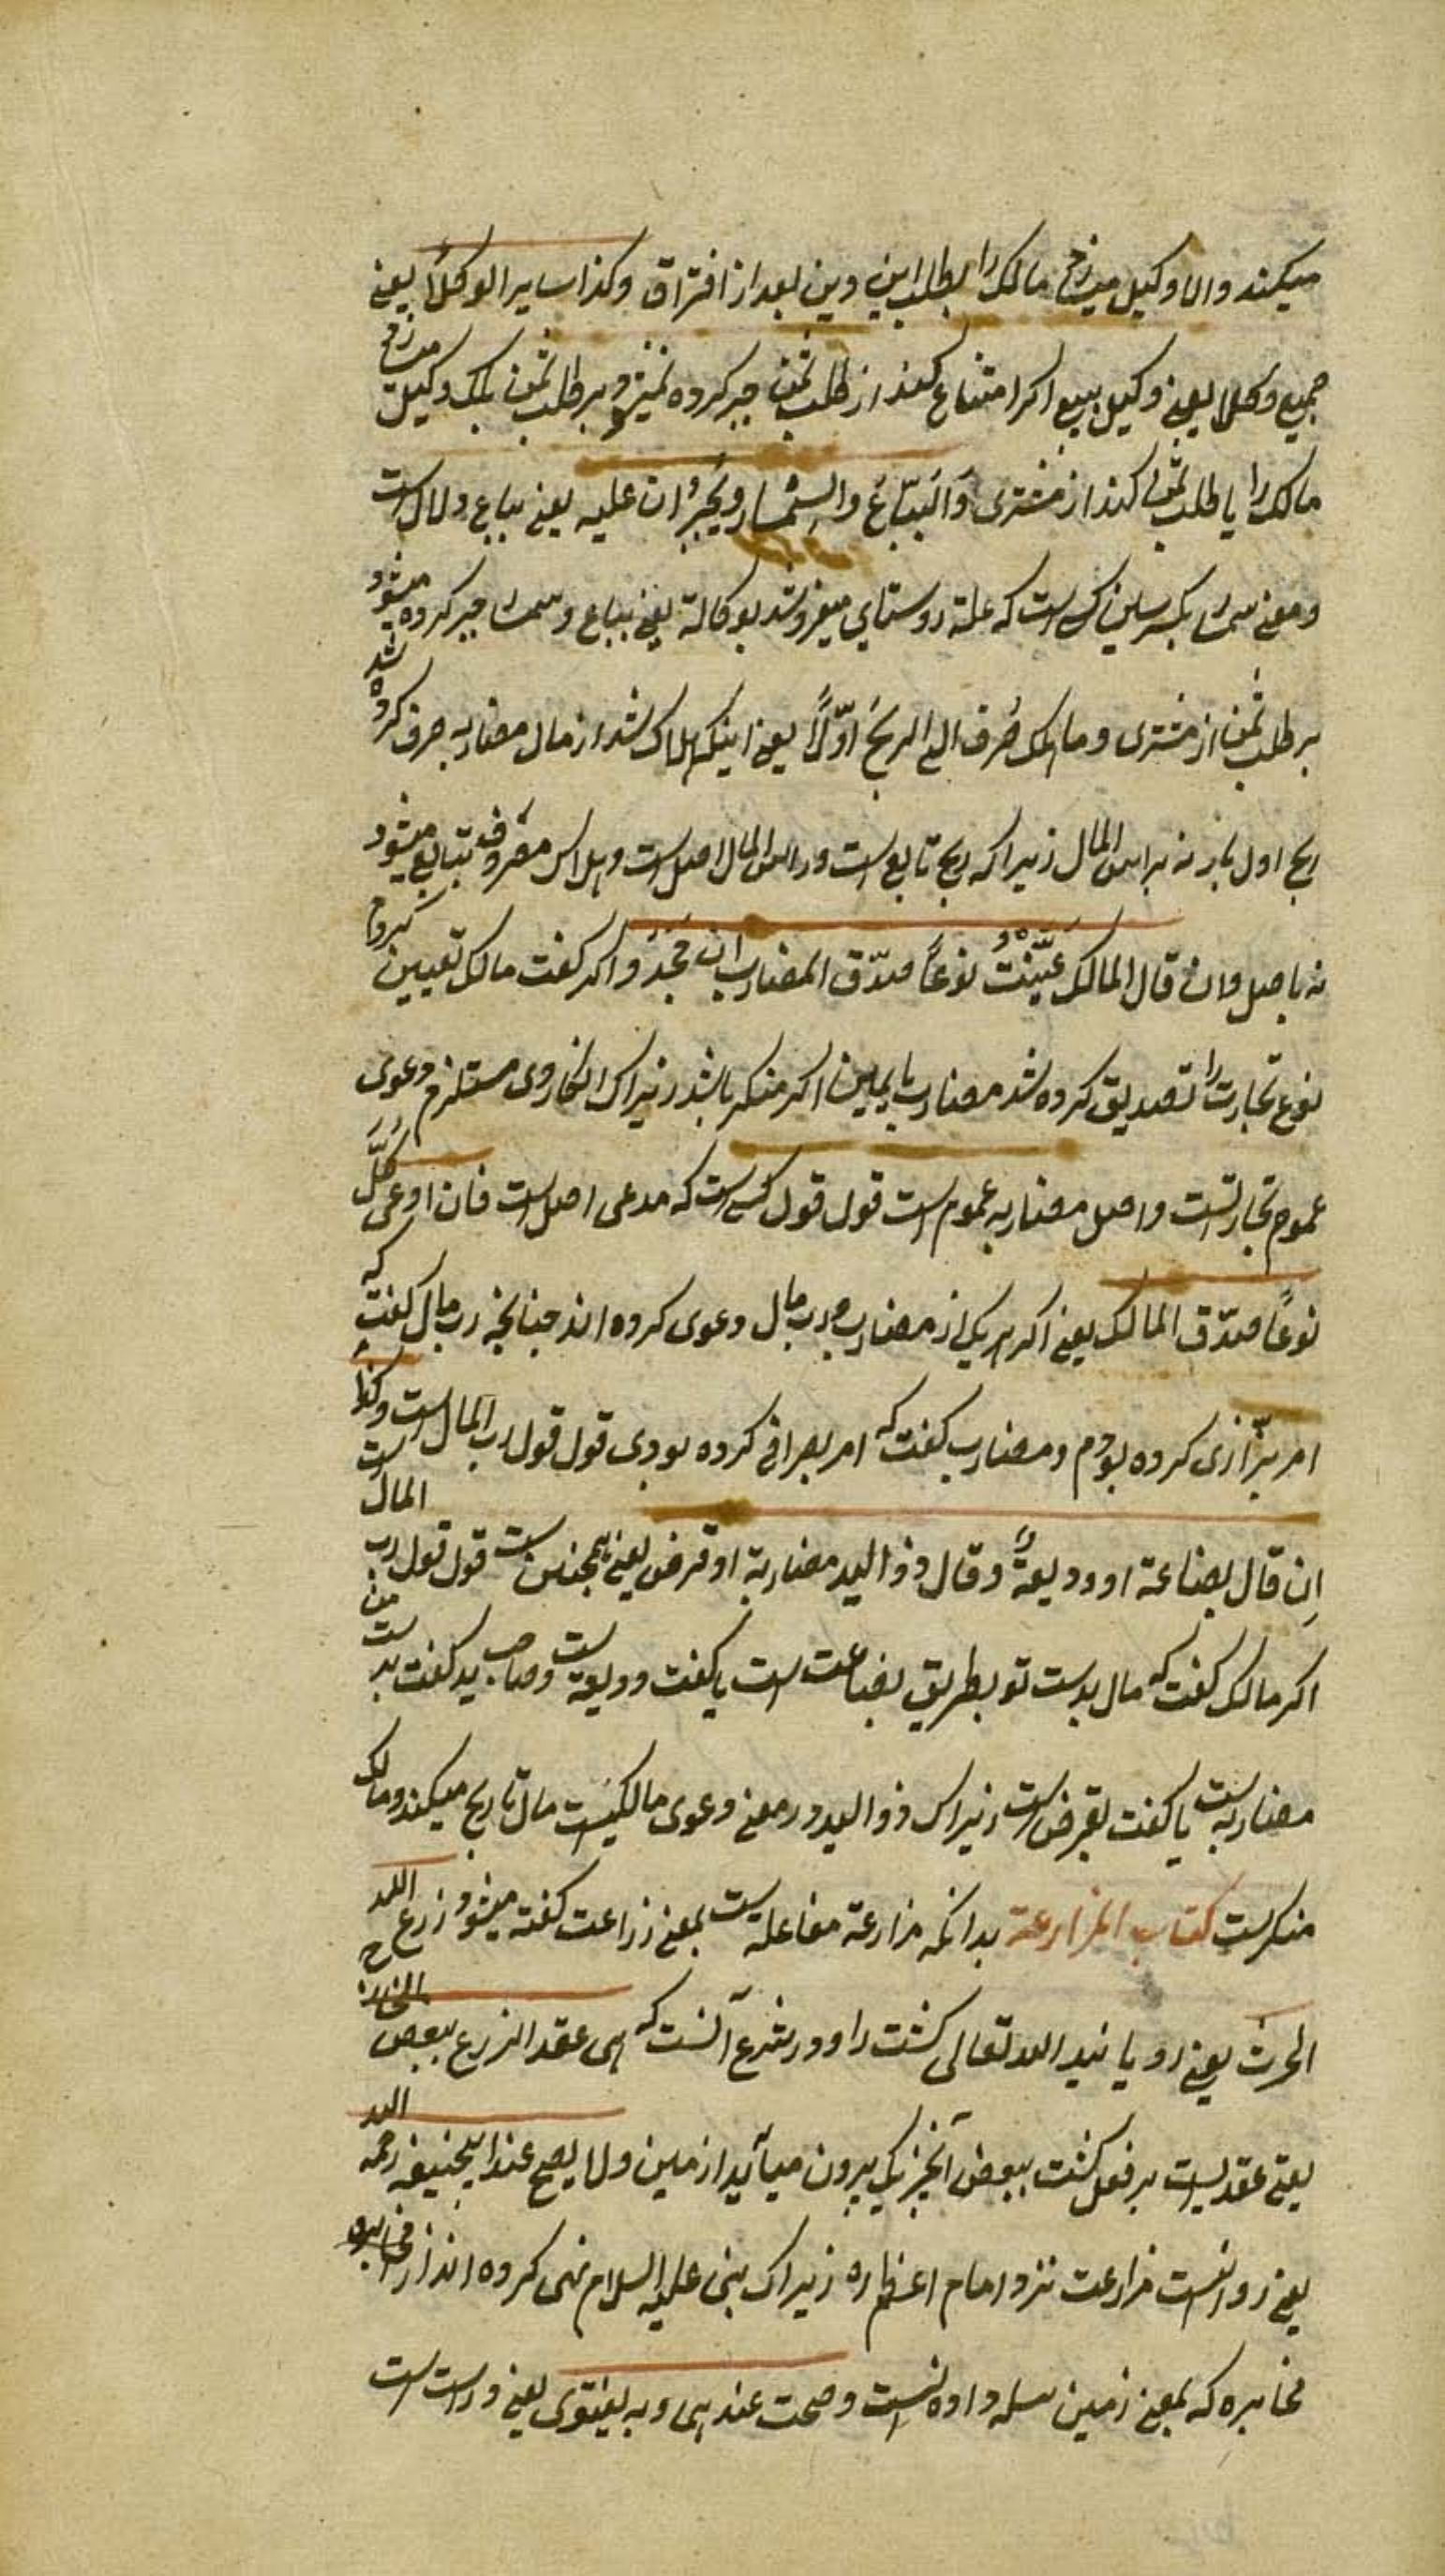 میکند والا وکیل میسازد مالک را بطلب این دین بعد از افتراق وکذا سایر الوکلاء یعنی
جمیع وکلا یعنی وکیل بیع اکر امتناع کند از طلب ثمن جبر کرده نمیشود بر طلب ثمن بلک وکیل میسازد
مالک را یا طلب ثمن کند از مشتری وَالبیّاعُ والسِّمْسار ویُجْبَران علیه یعنی بیاع دلال است
ومعنی سمسار بکسر سین کسی است که غلهٔ روستای میفروشد بوکالة یعنی بیاع وسمسار جبر کرده میشود
بر طلب ثمن از مشتری وما هلک صُرف الی الربح اوّلاً یعنی اینکه هلاک شد از مال مضاربه صرف کرده شد
ربح اول بار نه براس المال زیرا که ربح تابع است وراس المال اصل است وهلاک مصروف بتابع میشود
نه باصل وان قال المالک عیّنتُ نوعاً صدّق المضارب ان جَحَدَ واکر کفت مالک تعیین کردم
نوع تجارت را تصدیق کرده شد مضارب بایمین اکر منکر باشد زیراک انکار وی مستلزم دعوی
عموم تجارتست واصل مضاربه عموم است قول قول کسی است که مدعی اصل است فان ادعی کلٌّ
نوعاً صدّق المالک یعنی اکر هر یکی از مضارب ورب مال دعوی کرده اند چنانچه رب مال کفت که
امر بزّازی کرده بودم ومضارب کفت که امر بصرافی کرده بودی قول قول رب المال است وکذا
اِن قال بضاعة او ودیعةً وقال ذو الید مضاربة او قرض یعنی همچنین است قول قول رب المال است
اکر مالک کفت که مال بدست تو بطریق بضاعت است یا کفت ودیعة است وصاحب ید کفت بدست من
مضاربه است یا کفت بقرض است زیراک ذو الید در معنی دعوی مالکیت مال یا ربح میکند ومالک
منکرست کتاب المزارعة بدانکه مزارعة مفاعله است بمعنی زراعت کفته میشود زرع الله
الحرث یعنی رویانید الله تعالی کشت را ودر شرع آنست که هی عقد الزرع ببعض الخارج
یعنی عقدیست بر فعل کشت ببعض آنچیزیک بیرون میآید از زمین ولا یصح عند ابیحنیفه رحمه الله
یعنی روا نیست مزارعت نزد امام اعظم ره زیراک نبی علیه السلام نهی کرده اند از مخابره
مخابره که بمعنی زمین بسله داده نیست وصحت عندهما وبه یفتوی یعنی درست است